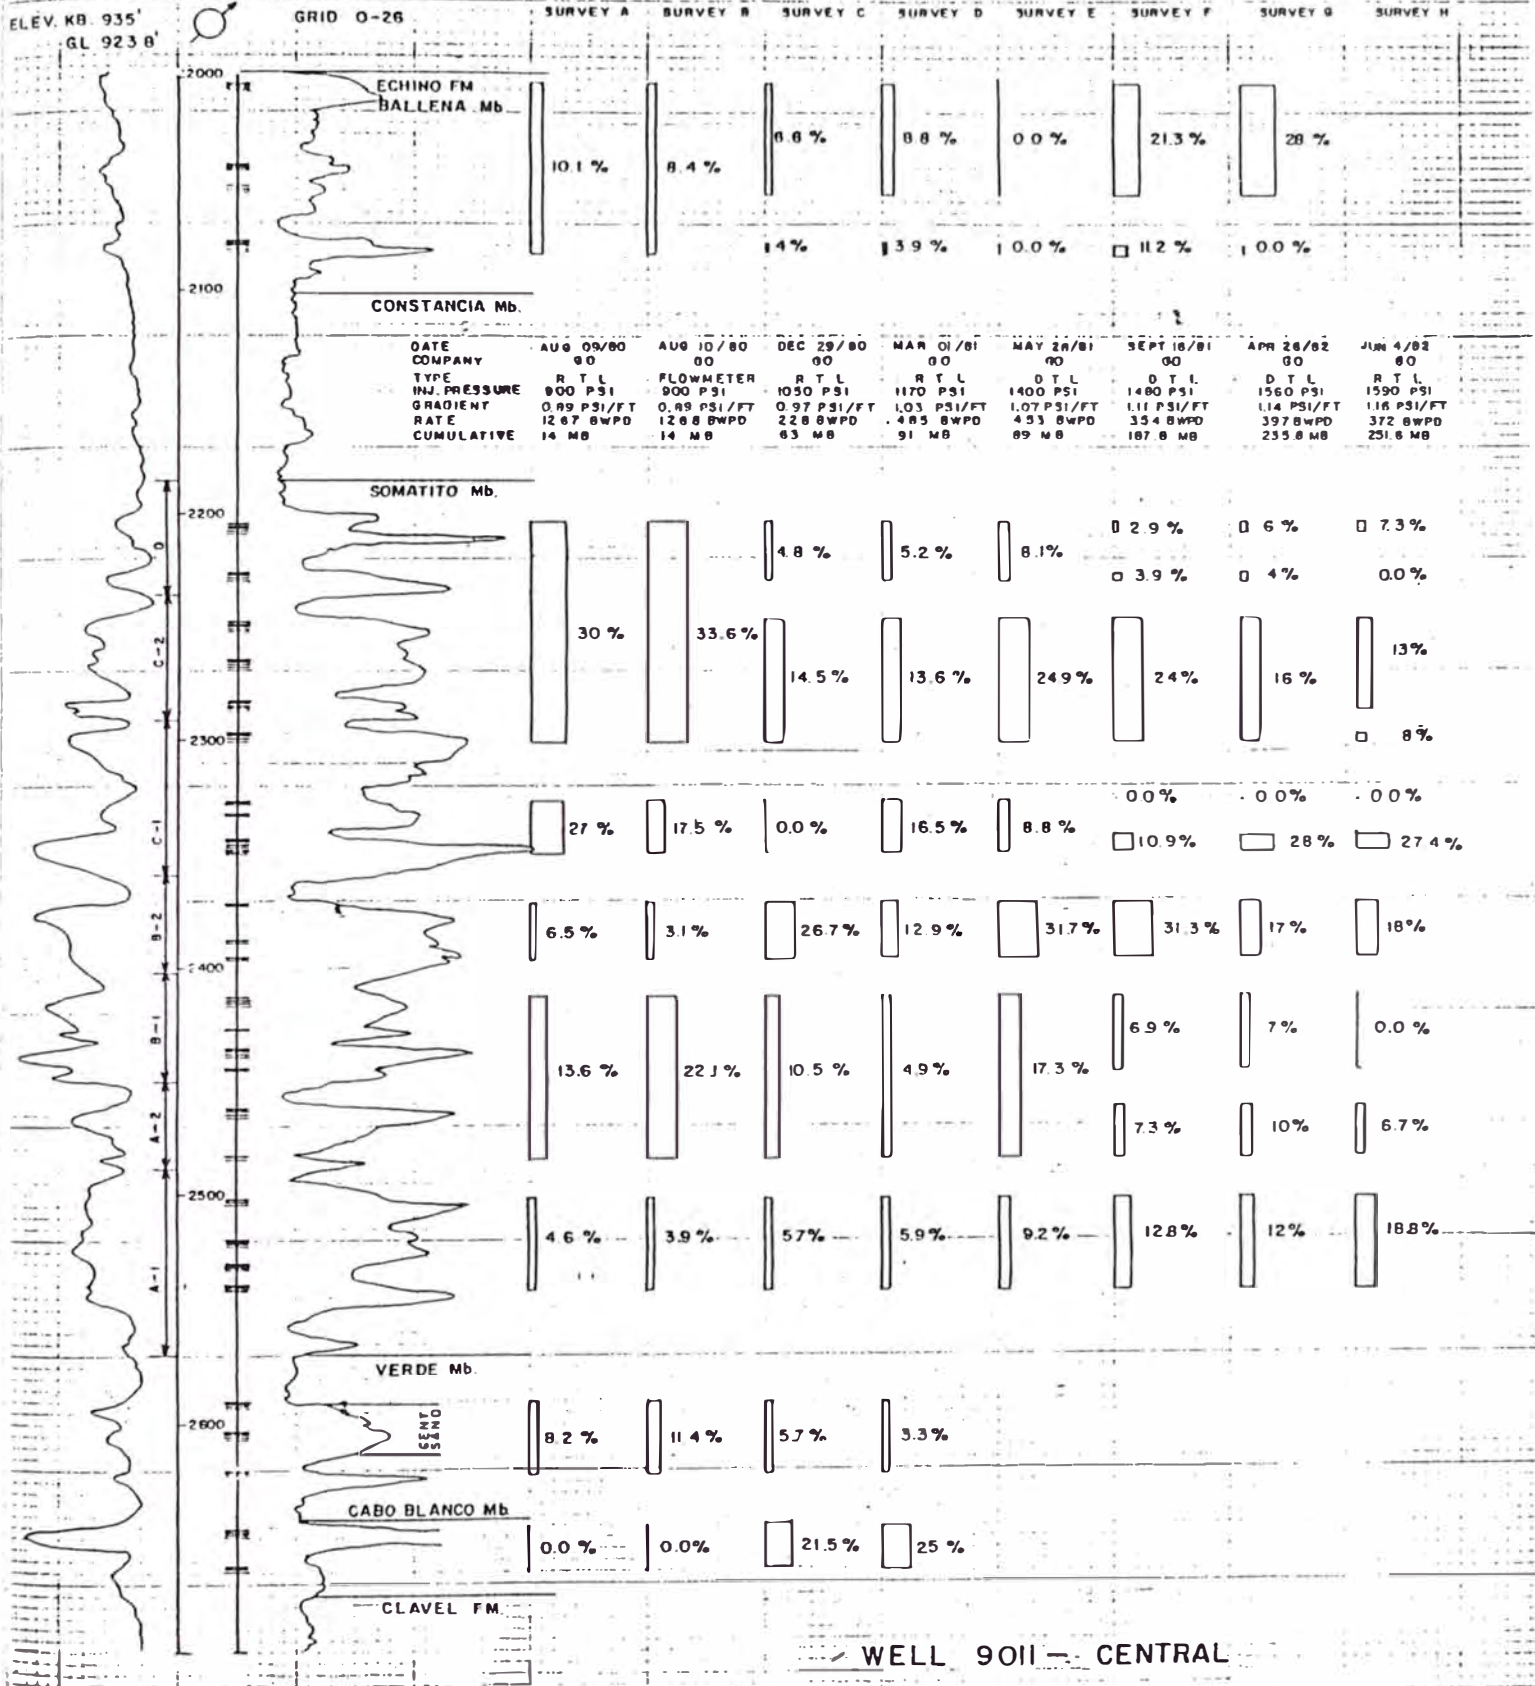 ELEV. KB. 935'
GL 923 8'
GRID O-26
SURVEY A SURVEY B SURVEY C SURVEY D SURVEY E SURVEY F SURVEY G SURVEY H
2000
ECHINO FM
BALLENA Mb.
6.6 % 8.8 % 0 0 % 21.3 % 28 %
10.1 % 8.4 %
4% 3.9 % 0.0 % 11.2 % 0.0 %
2100
CONSTANCIA Mb.
DATE AUG 09/80 AUG 10/80 DEC 29/80 MAR 01/81 MAY 28/81 SEPT 16/81 APR 26/82 JUN 4/82
COMPANY
TYPE R T L FLOWMETER R T L R T L D T L D T L D T L R T L
INJ. PRESSURE 900 PSI 900 PSI 1050 PSI 1170 PSI 1400 PSI 1480 PSI 1560 PSI 1590 PSI
GRADIENT 0.89 PSI/FT 0.89 PSI/FT 0.97 PSI/FT 1.03 PSI/FT 1.07 PSI/FT 1.11 PSI/FT 1.14 PSI/FT 1.16 PSI/FT
RATE 1267 BWPD 1268 BWPD 228 BWPD 485 BWPD 453 BWPD 354 BWPD 397 BWPD 372 BWPD
CUMULATIVE 14 MB 14 MB 63 MB 91 MB 89 MB 187.8 MB 235.8 MB 251.6 MB
SOMATITO Mb.
2200
D
2.9 % 6 % 7.3 %
4.8 % 5.2 % 8.1%
3.9 % 4 % 0.0 %
C-2
30 % 33.6 % 13%
14.5 % 13.6 % 24.9 % 24 % 16 %
2300
8 %
C-1
0 0 % 0 0 % 0 0 %
27 % 17.5 % 0.0 % 16.5 % 8.8 %
10.9% 28 % 27 4 %
B-2
6.5 % 3.1 % 26.7 % 12.9 % 31.7 % 31.3 % 17% 18%
2400
B-1
6.9 % 7 % 0.0 %
13.6 % 22.1 % 10.5 % 4.9 % 17.3 %
A-2
7.3 % 10% 6.7 %
2500
A-1
4.6 % 3.9 % 5.7% 5.9 % 9.2 % 12.8 % 12% 18.8 %
VERDE Mb.
2600
CENT
SAND
8.2 % 11.4 % 5.7 % 3.3 %
CABO BLANCO Mb
0.0 % 0.0% 21.5 % 25 %
CLAVEL FM.
WELL 9011 - CENTRAL